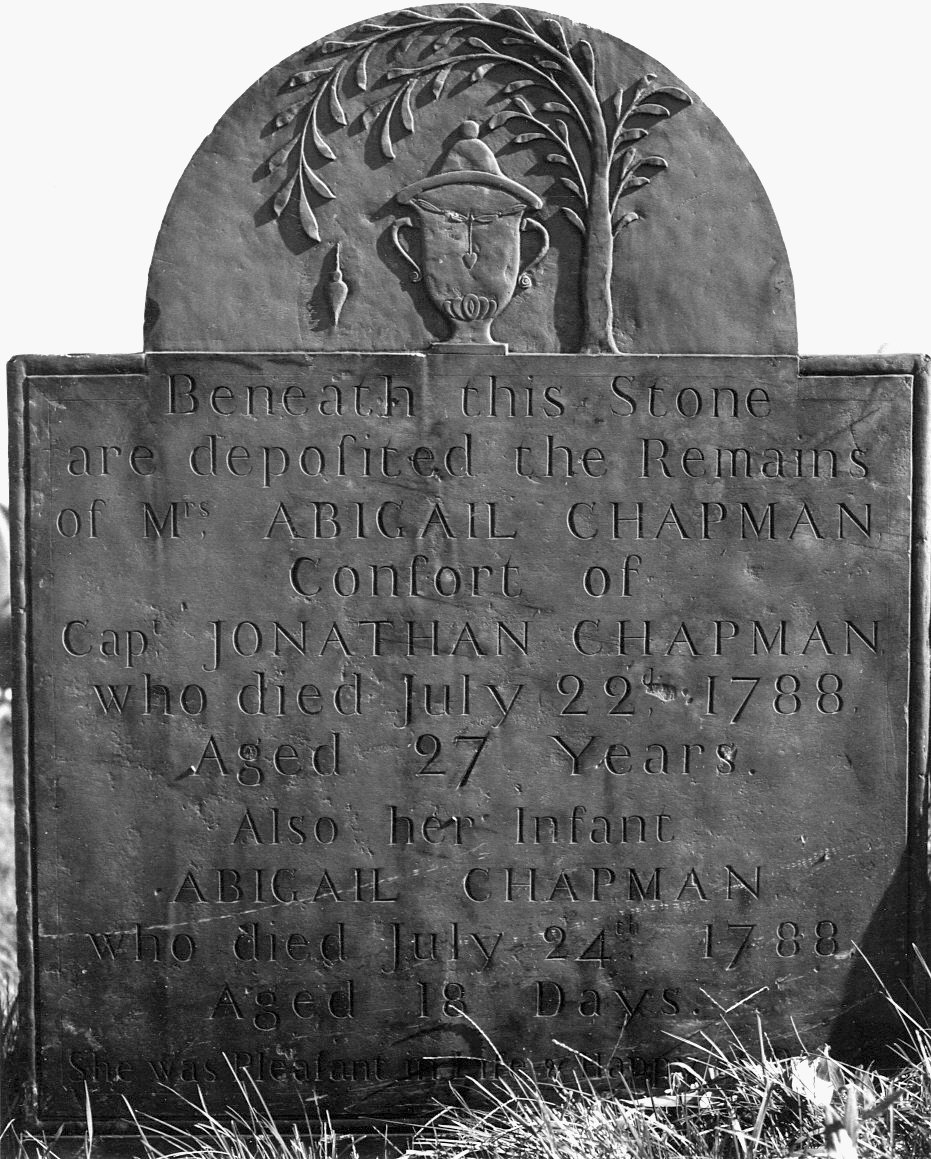 Beneath this Stone
are depoſited the Remains
of Mrs. ABIGAIL CHAPMAN,
Confort of
Capt. JONATHAN CHAPMAN,
who died July 22d. 1788,
Aged 27 Years.
Also her Infant
ABIGAIL CHAPMAN,
who died July 24th. 1788
Aged 18 Days.
She was Pleaſant in Life &